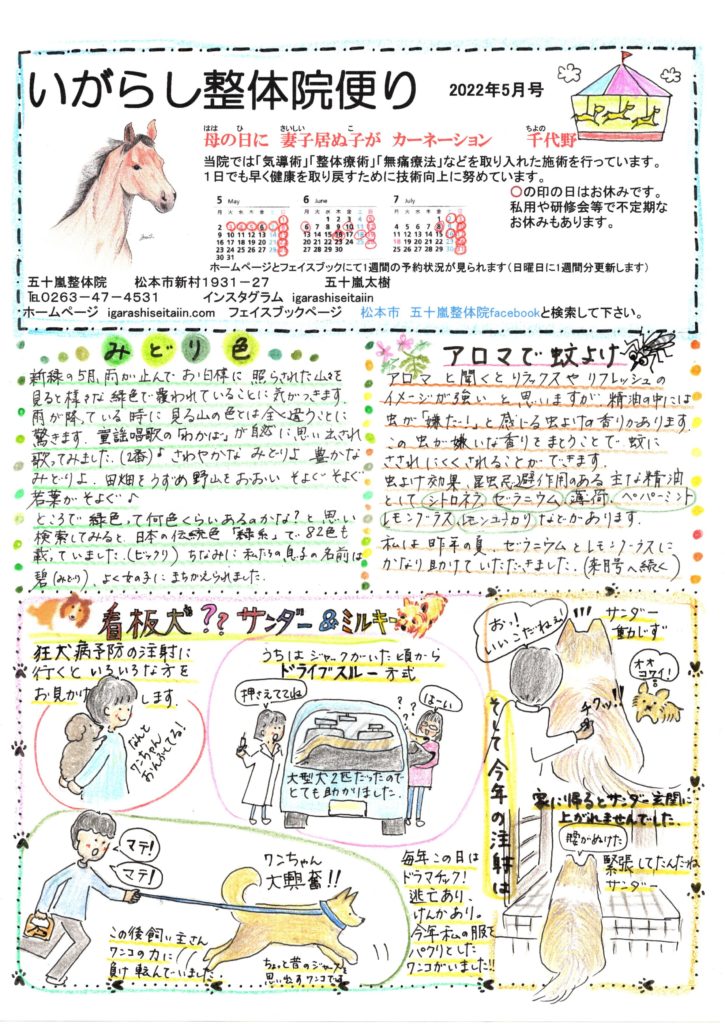 いがらし整体院便り
2022年5月号
母の日に 妻子居ぬ子が カーネーション 千代野
はは ひ さいしい こ ちよの
当院では「気導術」「整体療術」「無痛療法」などを取り入れた施術を行っています。
1日でも早く健康を取り戻すために技術向上に努めています。
○の印の日はお休みです。
私用や研修会等で不定期な
お休みもあります。
5 May
6 June
7 July
ホームページとフェイスブックにて1週間の予約状況が見られます(日曜日に1週間分更新します)
五十嵐整体院 松本市新村1931-27 五十嵐太樹
℡0263-47-4531 インスタグラム igarashiseitaiin
ホームページ igarashiseitaiin.com フェイスブックページ 松本市 五十嵐整体院facebookと検索して下さい。
みどり色
新緑の5月、雨が止んでお日様に照らされた山々を
見ると様々な緑色で覆われていることに気がつきます。
雨が降っている時に見る山の色とは全く違うことに
驚きます。童謡唱歌の「わかば」が自然に思い出され
歌ってみました。(2番)♪さわやかな みどりよ 豊かな
みどりよ 田畑をうずめ 野山をおおい そよぐそよぐ
若葉がそよぐ♪
ところで緑色って何色くらいあるのかな?と思い
検索してみると、日本の伝統色「緑系」で、82色も
載っていました。(ビックリ) ちなみに私たちの息子の名前は
碧(みどり)、よく女の子にまちがえられました。
アロマで蚊よけ
アロマと聞くとリラックスやリフレッシュの
イメージが強いと思いますが、精油の中には
虫が「嫌だ~!」と感じる虫よけの香りがあります。
この虫が嫌いな香りをまとうことで蚊に
さされにくくされることができます。
虫よけ効果、昆虫忌避作用のある主な精油
として シトロネラ ゼラニウム 薄荷、ペパーミント
レモングラス、レモンユーカリ などがあります。
私は昨年の夏、ゼラニウムとレモングラスに
かなり助けていただきました。(来月号へ続く)
看板犬?? サンダー&ミルキー
狂犬病予防の注射に
行くといろいろな方を
お見かけします。
なんと
ワンちゃん
おんぶしてる!
うちはジャックがいた頃から
ドライブスルー方式
押さえててね
はーい
大型犬2匹だったので
とても助かりました。
マテ!
マテ!
ワンちゃん
大興奮!!
この後飼い主さん
ワンコの力に
負け転んでいました。
ちょっと昔のジャックを
思い出すワンコです
毎年この日は
ドラマチック!
逃亡あり、
けんかあり。
今年私の服を
パクリとした
ワンコがいました!!
そして今年の注射は
おぉ!
いいこだねぇ!
サンダー
動じず
オオ
コワイ!
チクッ!!
家に帰るとサンダー玄関に
上がれませんでした。
腰がぬけた
緊張してたんだね
サンダー